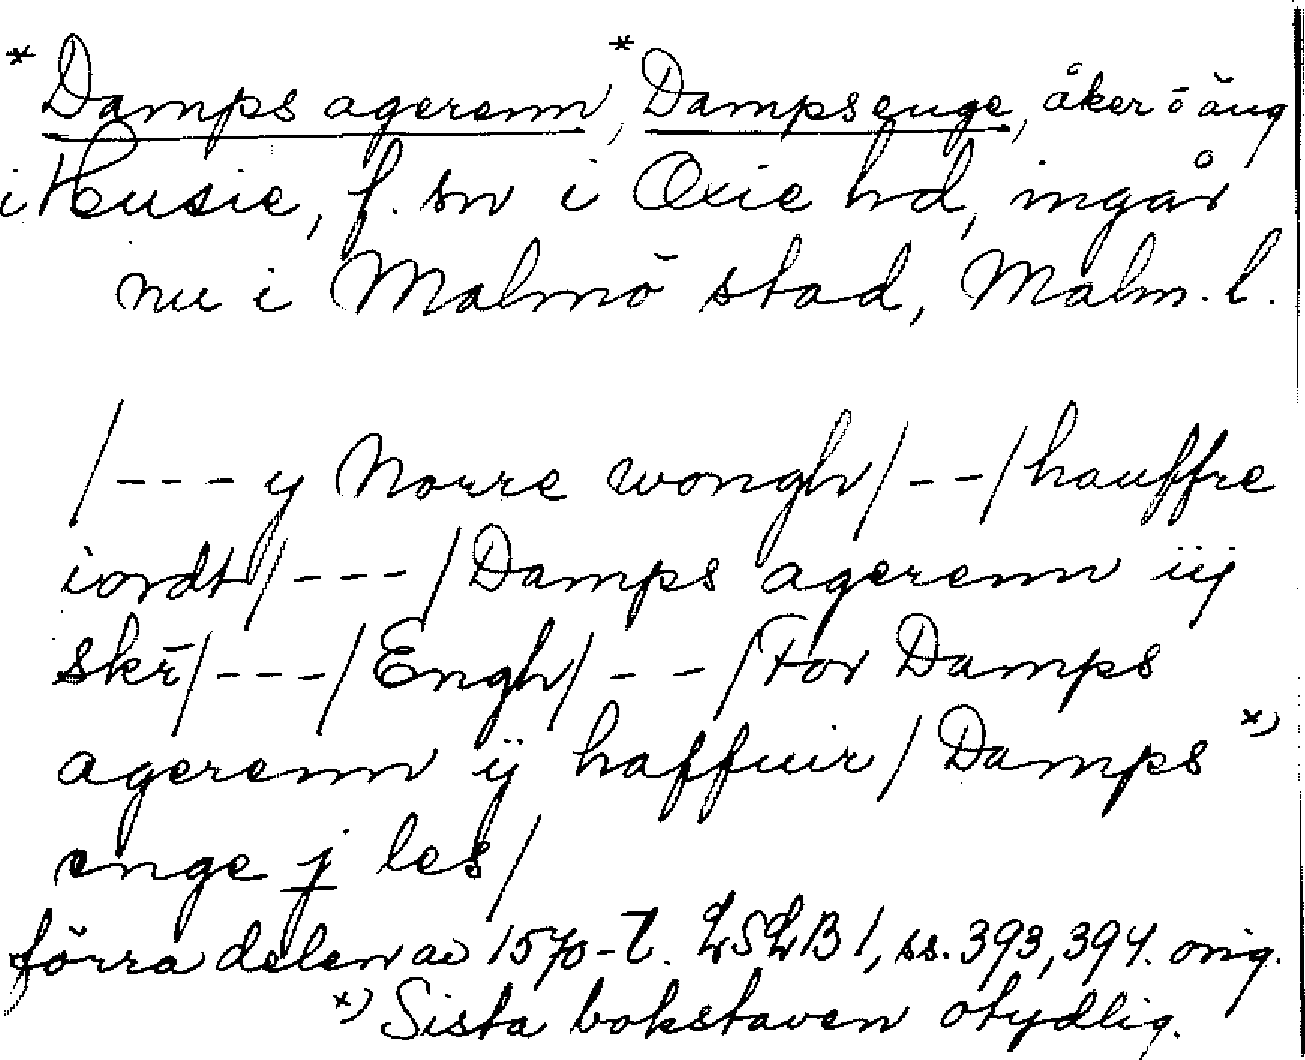 *Damps agerenn, *Damps enge, åker o äng
i Husie, f. sn i Oxie hd, ingår
nu i Malmö stad, Malm. l.
/---y Norre wongh/--/hauffre
iordt/---/Damps agerenn iij
skr̄/---/Engh/--/For Damps
agerenn ij haffuir/Damps *)
enge j les/
förra delen av 1570-t. LSLB 1, ss. 393, 394. orig.
*) Sista bokstaven otydlig.